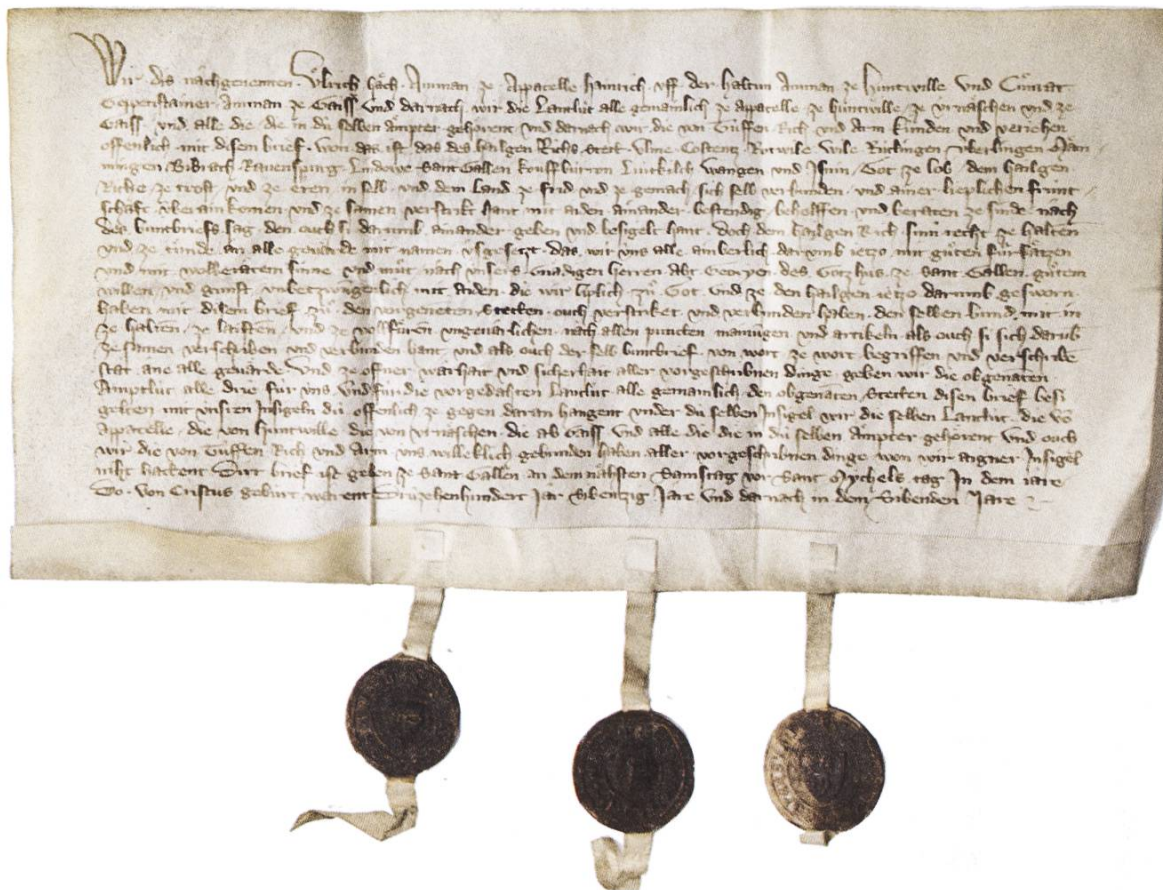 Wir dis nachgenemten Ůlrich häch Amman ze Appacelle Hainrich vff der halttun Amman ze huntwille Vnd Cůnrat
Geppenstainer Amman ze Gaiss Vnd darnach wir die Lantlüt alle gemainlich ze Appacelle ze huntwille ze vrnäschen vnd ze
Gaiss vnd alle die die in dü selben ämpter gehörent vnd darnach wir die von Tüffen Rich vnd Arm künden vnd veriehen
offenlich mit disem brief won das ist das des hailgen Richs Stett Vlme Costentz Rotwile Wile Rütlingen Vberlingen Mem
mingen Bibrach Rauenspurg Lindowe Sant Gallen kouffbürron Lütkilch Wangen vnd Isnin Got ze lob dem hailgen
Riche ze trost vnd ze eren in selb vnd dem land ze frid vnd ze gemach sich selb verbunden vnd ainer lieplichen frunt
schaft vberainkomen vnd ze samen verstrikt hant mit aiden ainander bestendig beholffen vnd beraten ze sinde nach
des buntbriefs sag den ouch si darumb ainander geben vnd besigelt hant doch dem hailgen Rich sinu recht ze halten
vnd ze tünde an alle geuärde mit namen vsgesetzt das wir vns alle ainberlich darvmb ietzo mit gůten fürsätzen
vnd mit wolberätem sinne vnd můt nach vnsers gnädigen herren Abt Georyen des Gotzhus ze Sant Gallen gůtem
willen vnd gunst vnbetzwngenlich mit aiden die wir liplich zů Got vnd ze den hailgen ietzo darumb gesworn
haben mit disem brief zů den vorgeneten Stetten ouch verstriket vnd verbunden haben den selben bund mit in
ze halten ze laisten vnd ze vollfüren vngeuarlichen nach allen puncten mainügen vnd artikeln als ouch si sich darüb
ze samen verschriben vnd verbunden hant vnd als ouch der selb buntbrief von wort ze wort begriffen vnd verschribē
stat ane alle geuärde Vnd ze offner warhait vnd sicherhait aller vorgeschribnen dinge geben wir die obgenäten
Amptlüt alle drie für vns Vnd für die vorgedahten Lantlüt alle gemainlich den obgenäten Stetten disen brief besi
gelten mit vnsren Insigeln dü offenlich ze gegen daran hangent vnder dü selben Insigel wir die selben Lantlüt die vō
Appacelle die von huntwille die von vrnäschen die ab Gaiss vnd alle die die in dü selben ämpter gehörent vnd ouch
wir die von Tüffen Rich vnd Arm vns willeklich gebunden haben aller vorgeschribnen dinge won wir aigner Insigel
niht hattent Dirr brief ist geben ze Sant Gallen an dem nähsten Samstag vor Sant Mychels tag In dem iare
Do von Cristus geburt warent Drüzehenhundert Jar Sibentzig Jare Vnd darnach in dem Sibenden Jare